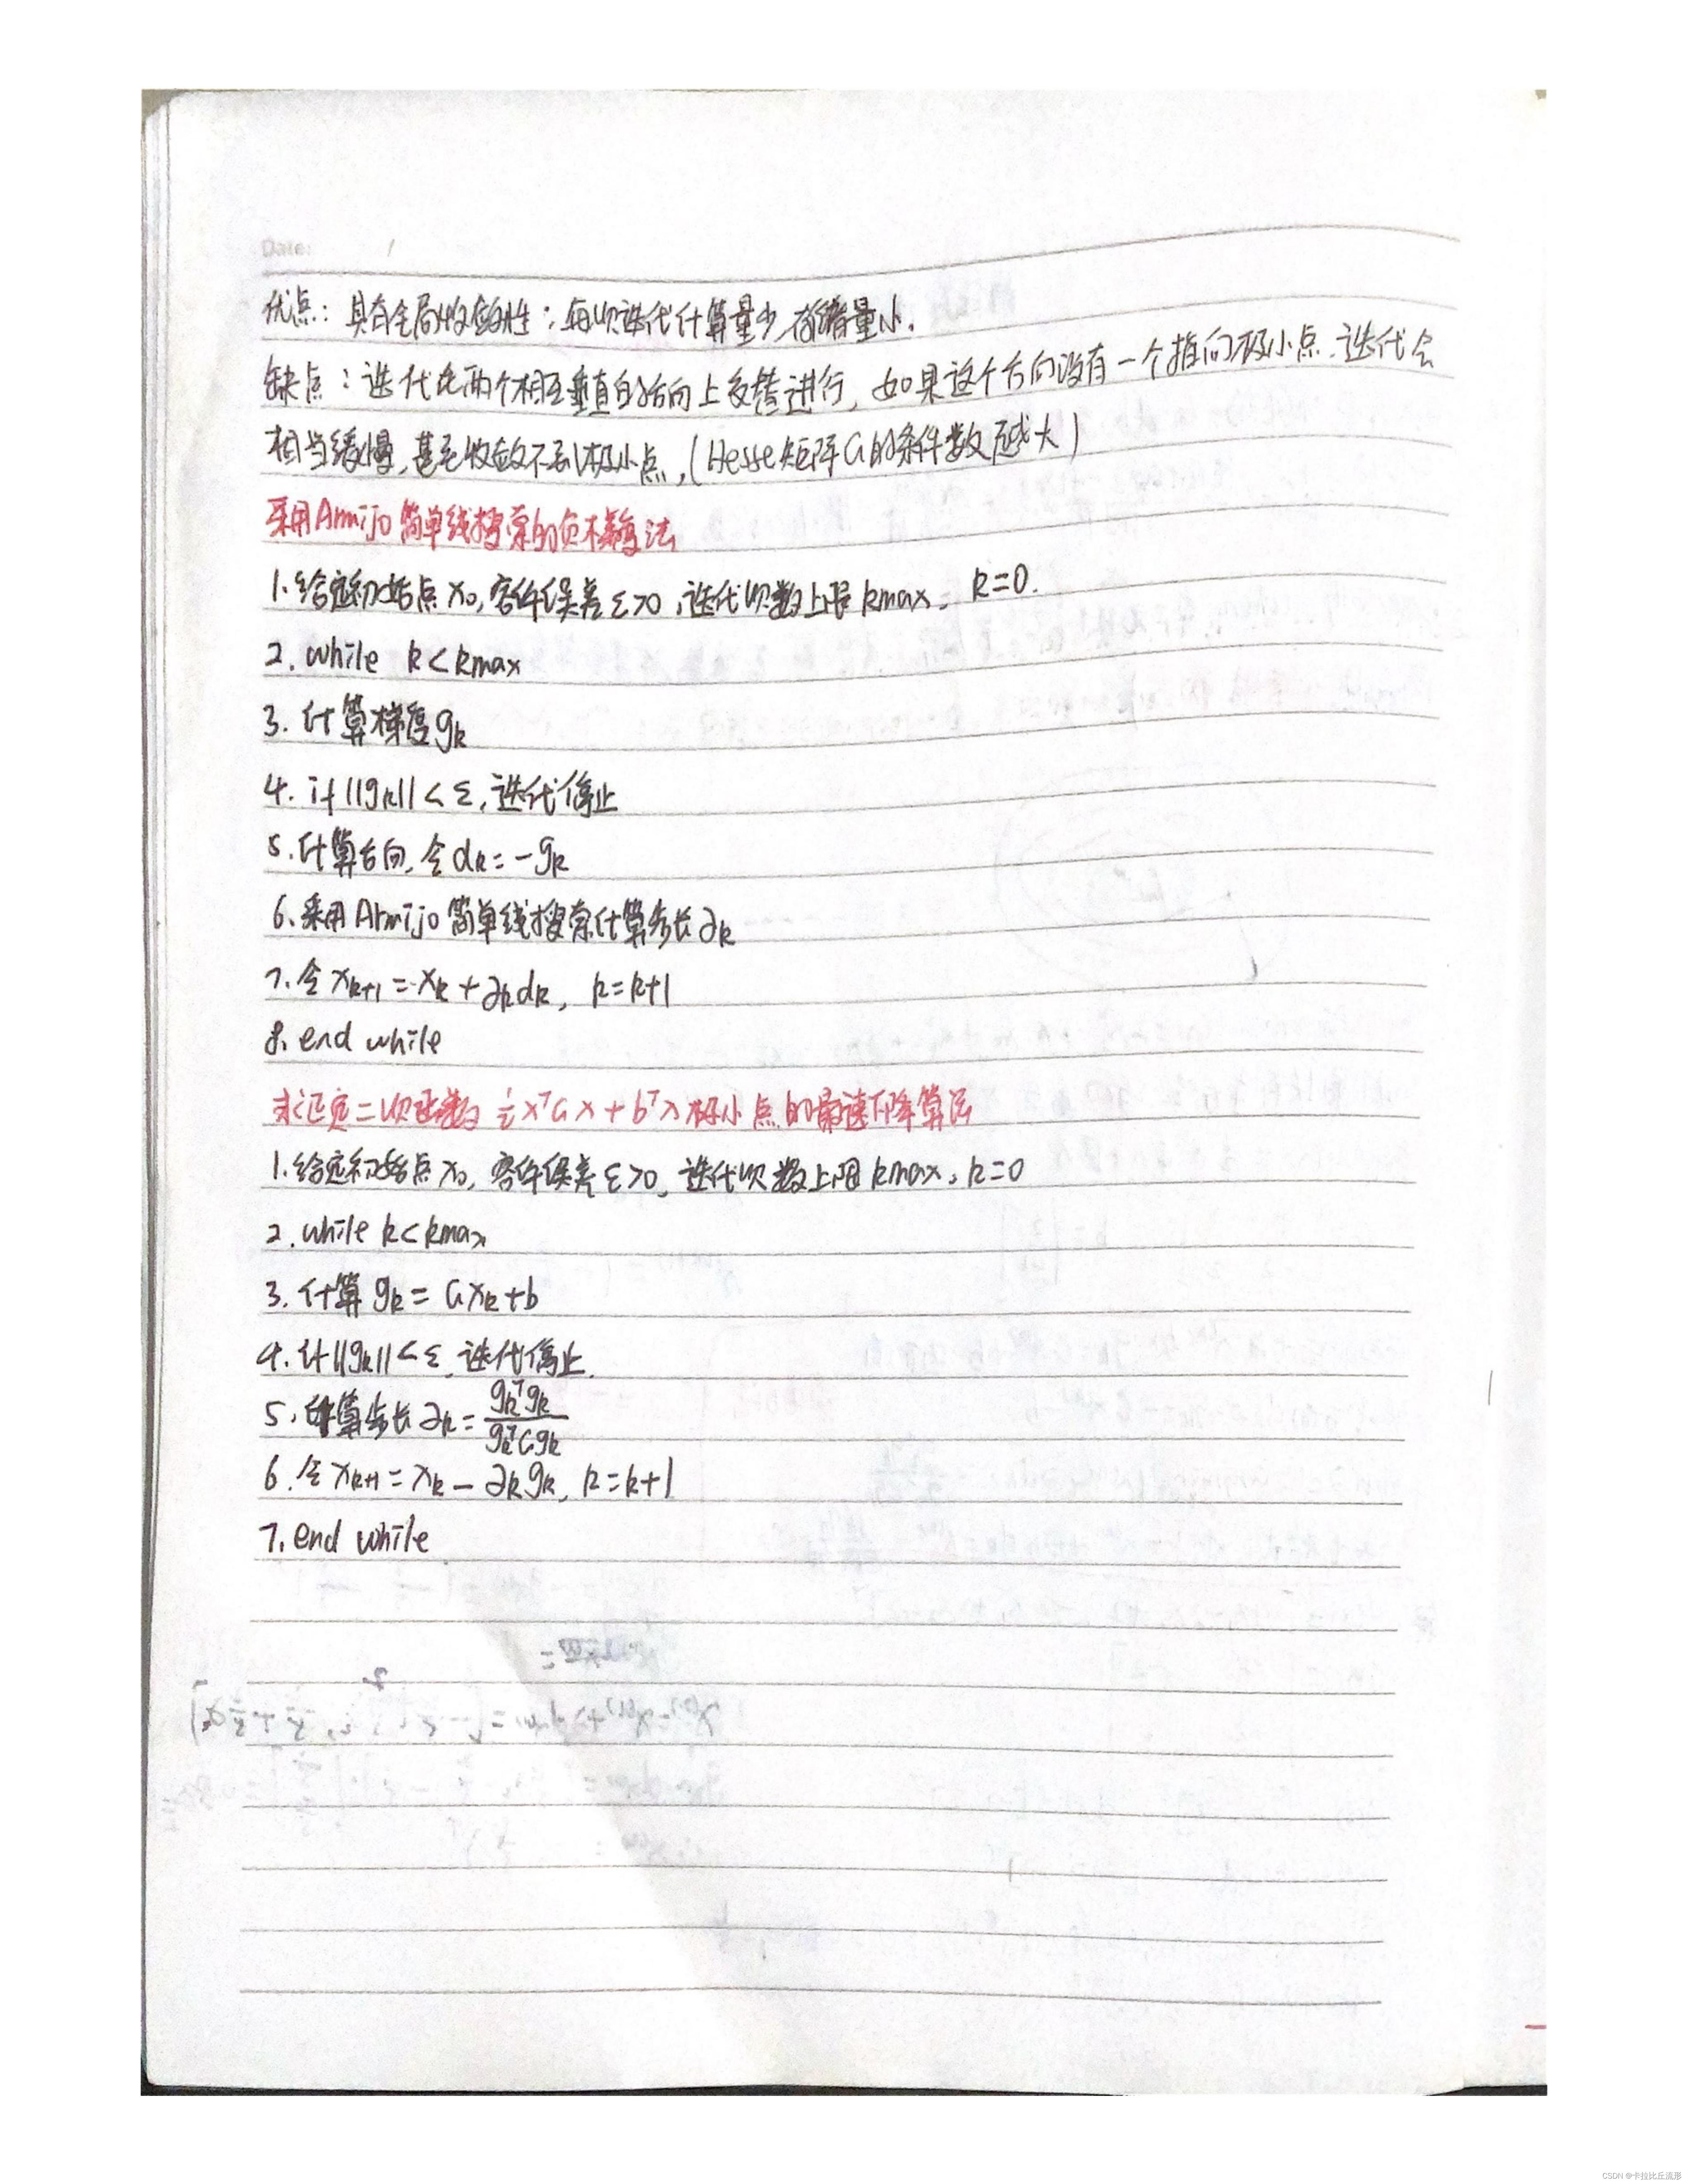 Date: /
优点：具有全局收敛性；每次迭代计算量少，存储量小.
缺点：迭代在两个相互垂直的方向上交替进行，如果这个方向没有一个指向极小点，迭代会
相当缓慢，甚至收敛不到极小点，(Hesse矩阵G的条件数越大)
采用Armijo简单线搜索的负梯度法
1.给定初始点x₀, 容许误差ε>0, 迭代次数上限kmax, k=0.
2. while k<kmax
3. 计算梯度gₖ
4. if ||gₖ||<ε, 迭代停止
5. 计算方向, 令dₖ=-gₖ
6. 采用Armijo简单线搜索计算步长∂ₖ
7. 令xₖ₊₁=xₖ+∂ₖdₖ, k=k+1
8. end while
求正定二次函数 ½xᵀGx+bᵀx极小点的最速下降算法
1.给定初始点x₀, 容许误差ε>0, 迭代次数上限kmax, k=0
2. while k<kmax
3. 计算gₖ=Gxₖ+b
4. if ||gₖ||<ε, 迭代停止.
5. 计算步长∂ₖ=gₖᵀgₖ/gₖᵀGgₖ
6. 令xₖ₊₁=xₖ-∂ₖgₖ, k=k+1
7. end while
CSDN @卡拉比丘流形